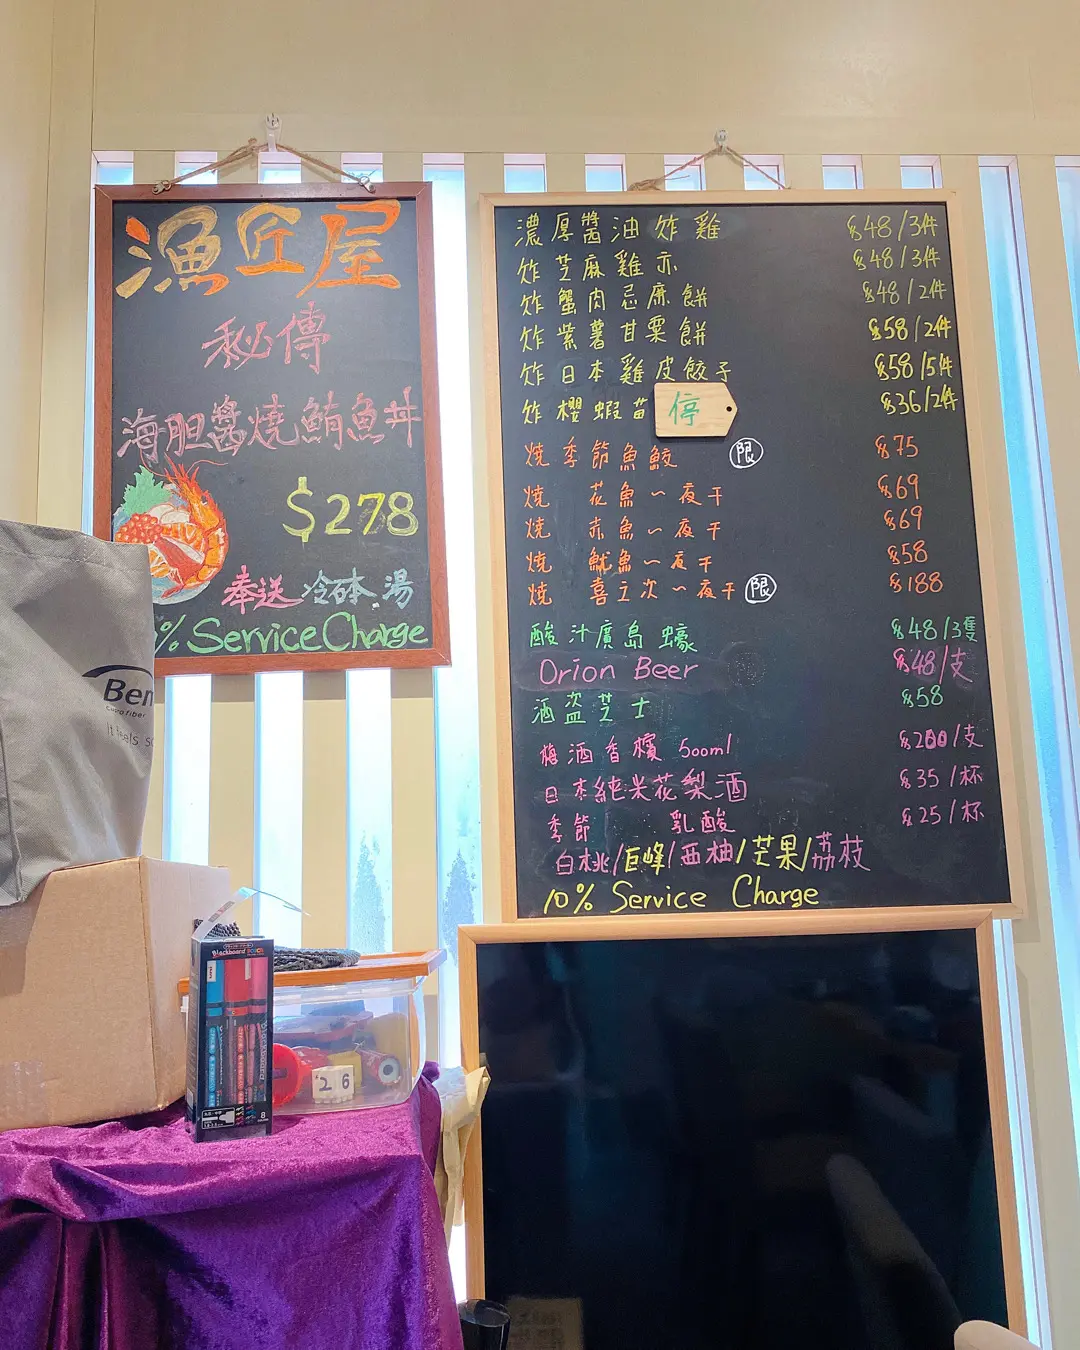 漁匠屋
秘傳
海胆醬燒鮪魚丼
$278
奉送 冷砵湯
% Service Charge
濃厚醬油炸雞 $48/3件
炸芝麻雞亦 $48/3件
炸蟹肉忌廉餅 $48/2件
炸紫薯甘栗餅 $58/2件
炸日本雞皮餃子 $58/5件
炸櫻蝦苗 停 $36/2件
燒季節魚鮫 限 $75
燒 花魚一夜干 $69
燒 赤魚一夜干 $69
燒 魷魚一夜干 $58
燒 喜之次一夜干 限 $188
酸汁廣島蠔 $48/3隻
Orion Beer $48/支
酒盗芝士 $58
梅酒香檳 500ml $200/支
日本純米花梨酒 $35/杯
季節 乳酸 $25/杯
白桃/巨峰/西柚/芒果/荔枝
10% Service Charge
Ben
It feels
Blackboard
8
26